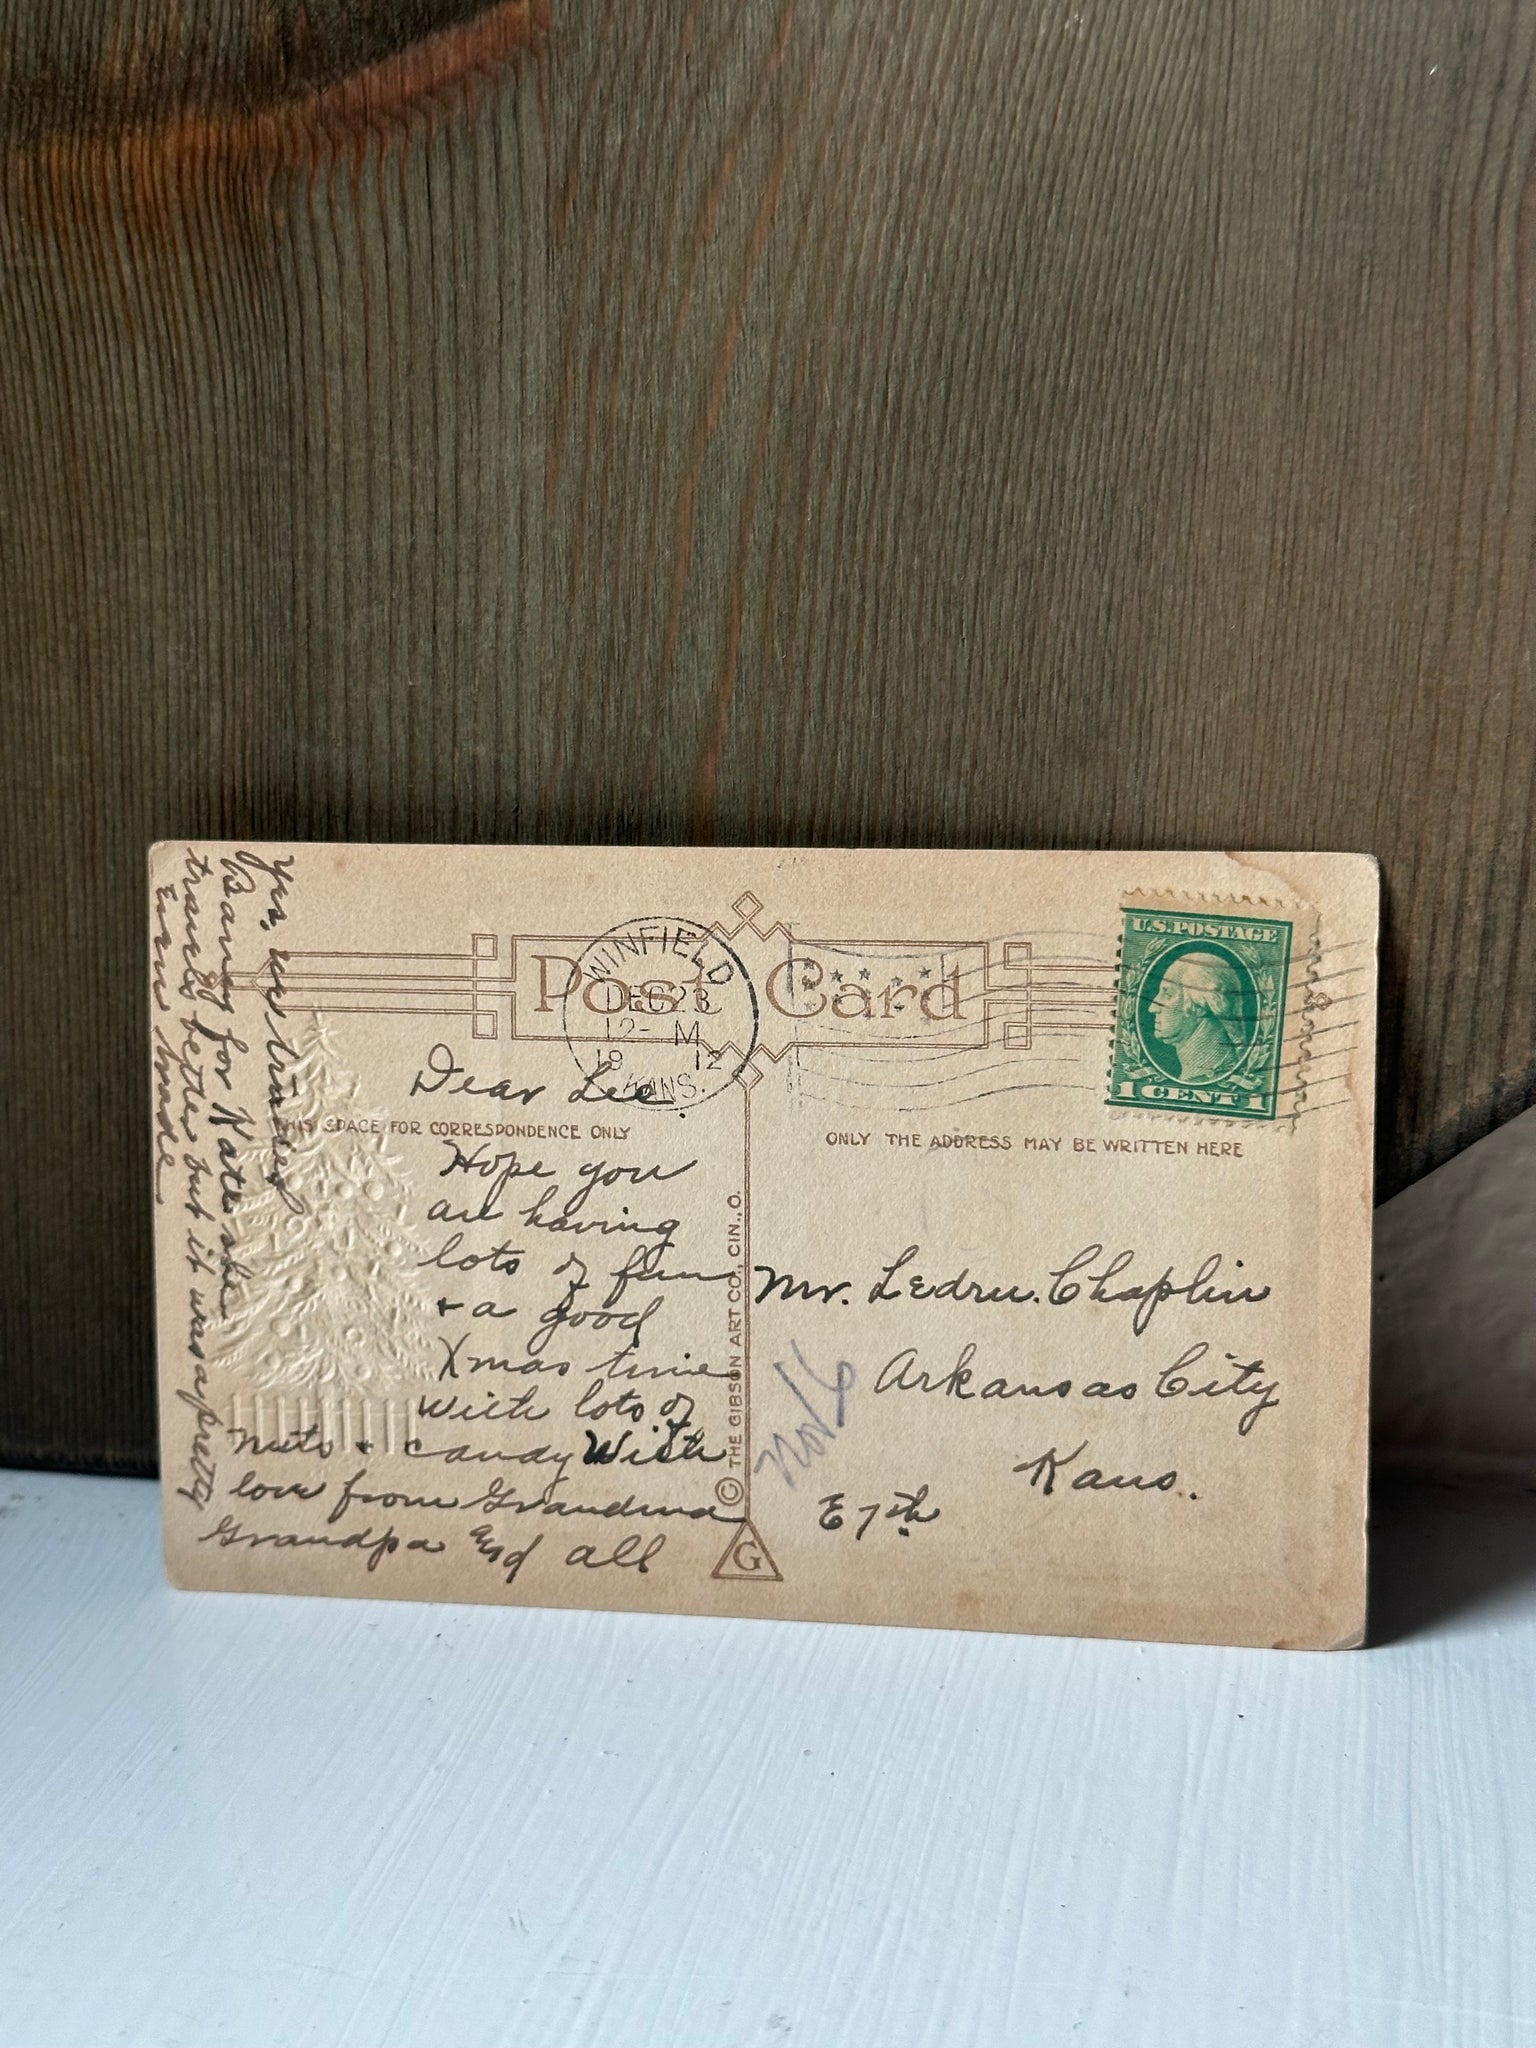 Post Card
WINFIELD
DEC 23
12- M
19 12
KANS.
U.S. POSTAGE
1 CENT 1
THIS SPACE FOR CORRESPONDENCE ONLY
ONLY THE ADDRESS MAY BE WRITTEN HERE
Dear Lee.
Hope you
are having
lots of fun
+ a good
Xmas time
with lots of
nuts + candy With
love from Grandma
Grandpa and all
Yrs. we traded
Barney for Kate she
travels better but it was a pretty
even trade
© THE GIBSON ART CO., CIN., O.
G
Mr. Ledru. Chaplin
Arkansas City
Kans.
E 7th
No/6